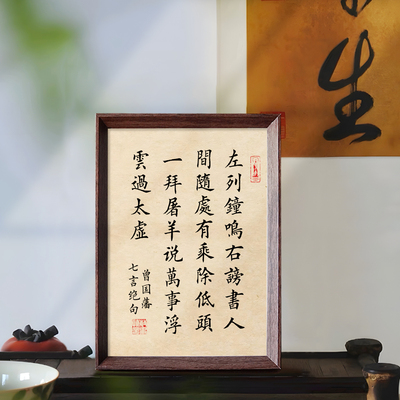 左列鐘鳴右謗書人
間隨處有乘除低頭
一拜屠羊说萬事浮
雲過太虛
曾国藩
七言绝句
生